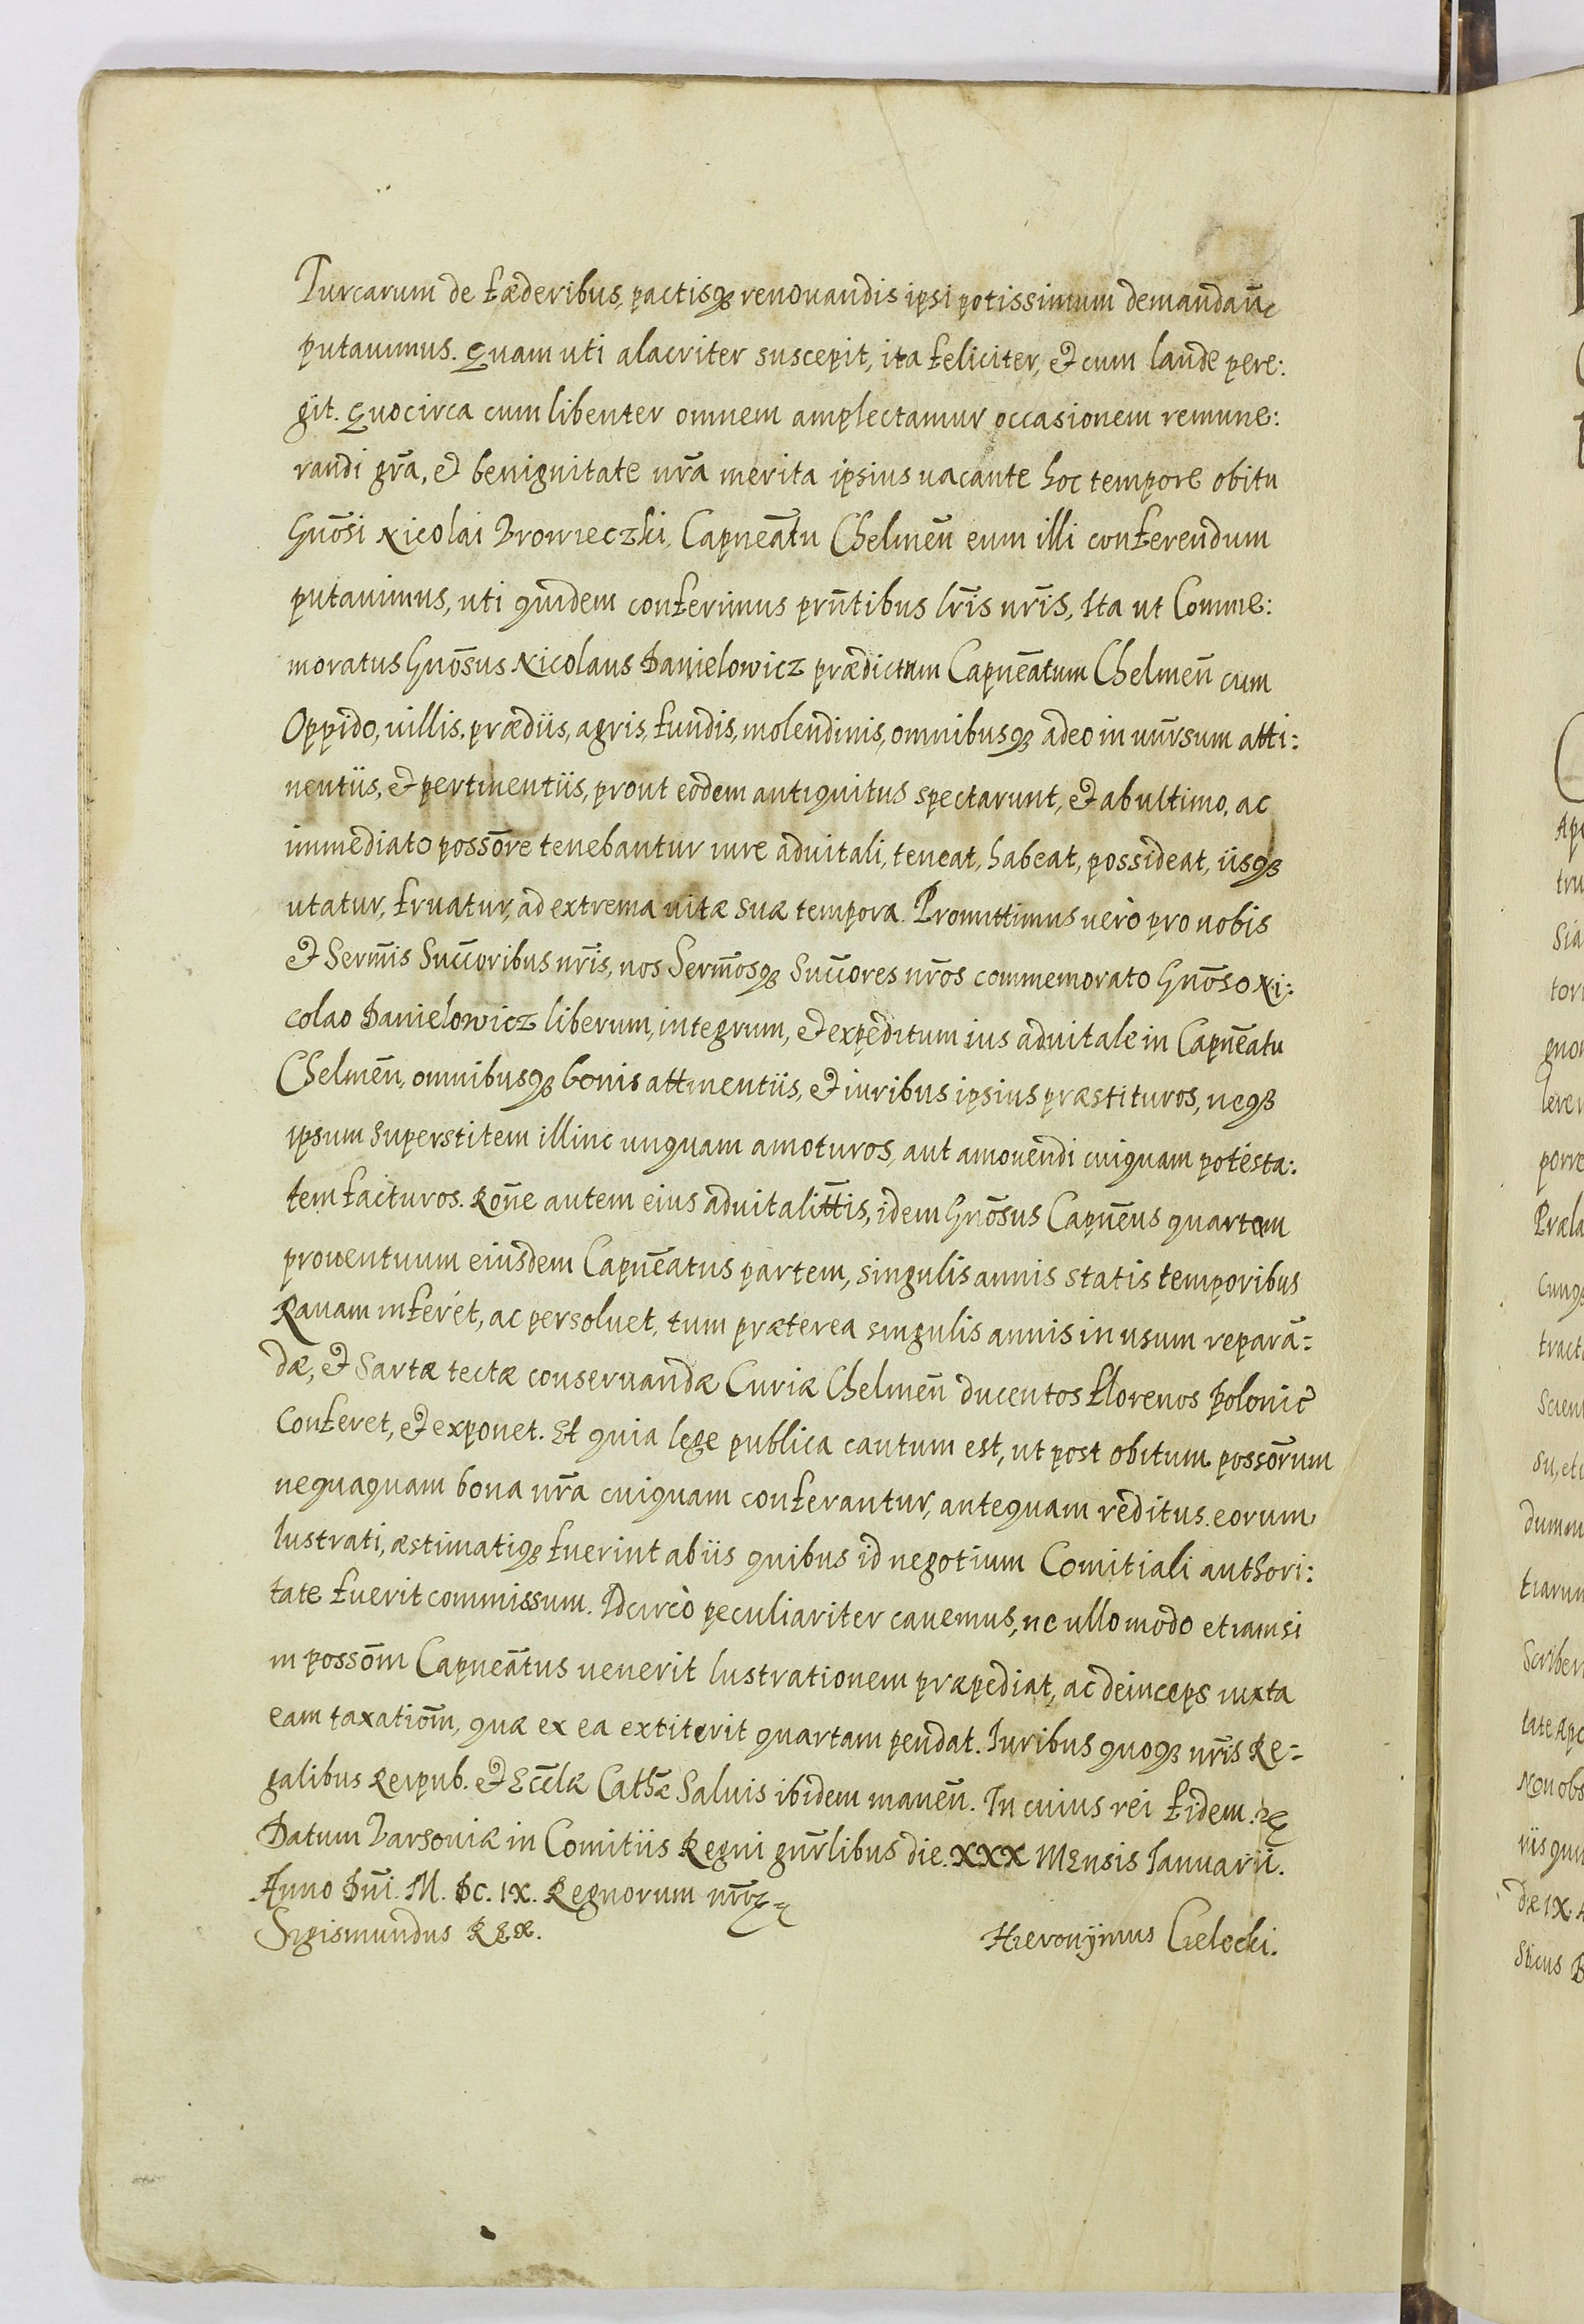 Turcarum de fæderibus, pactisqꝫ renouandis ipsi potissimum demandan̄
putauimus. Quam uti alacriter suscepit, ita feliciter, et cum laude pere:
git. Quocirca cum libenter omnem amplectamur occasionem remune:
randi gr̄a, et benignitate nr̄a merita ipsius uacante hoc tempore obitu
Gnōsi Nicolai Vrowieczki, Capneātu Chelmen̄ eum illi conferendum
putauimus, uti quidem conferimus prn̄tibus lr̄is nr̄is, Ita ut Comme:
moratus Gnōsus Nicolaus Danielowicz prædictum Capnēatum Chelmen̄ cum
Oppido, uillis, prædiis, agris, fundis, molendinis, omnibusqꝫ adeo in unr̄sum atti:
nentiis, et pertinentiis, prout eodem antiquitus spectarunt, et ab ultimo, ac
immediato possōre tenebantur iure aduitali, teneat, habeat, possideat, iisqꝫ
utatur, fruatur, ad extrema uitæ suæ tempora. Promittimus uerò pro nobis
et Serm̄is Succ̄oribus nr̄is, nos Serm̄osqꝫ Succ̄ores nr̄os commemorato Gnōso Ni:
colao Danielowicz liberum, integrum, et expeditum ius aduitale in Capnēatu
Chelmen̄, omnibusqꝫ bonis attinentiis, et iuribus ipsius præstituros, neqꝫ
ipsum superstitem illinc unquam amoturos, aut amouendi cuiquam potesta:
tem facturos. Rōne autem eius aduitalitt̄is, idem Gnōsus Capnēus quartam
prouentuum eiusdem Capnēatus partem, singulis annis statis temporibus
Rauam inferet, ac persoluet, tum præterea singulis annis in usum reparā=
dæ, et Sartæ tectæ conseruandæ Curiæ Chelmen̄ ducentos florenos polonic̄
Conferet, et exponet. Et quia lege publica cautum est, ut post obitum possōrum
nequaquam bona nr̄a cuiquam conferantur, antequam reditus eorum
lustrati, æstimatiqꝫ fuerint ab iis quibus id negotium Comitiali authori:
tate fuerit commissum. Idcircò peculiariter cauemus, ne ullo modo etiamsi
in possōm Capneātus uenerit lustrationem præpediat, ac deinceps iuxta
eam taxatiōm, quæ ex ea extiterit quartam pendat. Iuribus quoqꝫ nr̄is Re=
galibus Reipub. et Eccl̄æ Cathǣ Saluis ibidem manen̄. In cuius rei fidem.
Datum Varsouiæ in Comitiis Regni gnr̄libus die. XXX Mensis Ianuarii.
Anno Dn̄i. M. DC. IX. Regnorum nr̄oꝝ
Sigismundus Rex.
Hieronÿmus Cielecki.